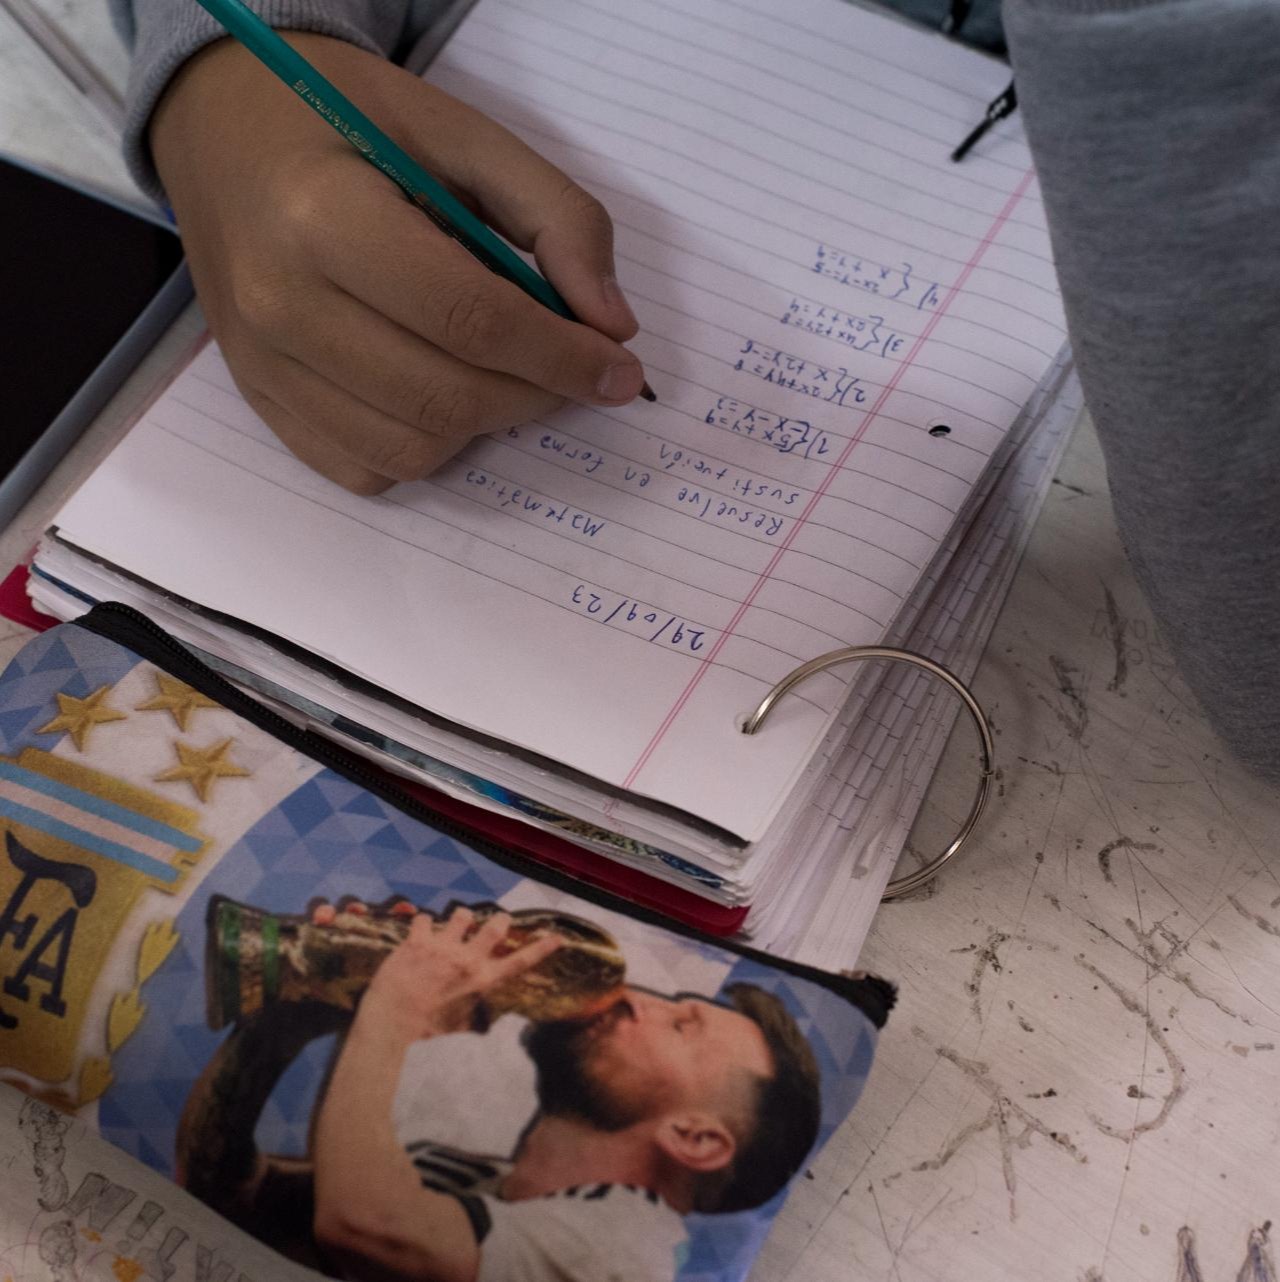 29/09/23
Matemática
Resuelve en forma
sustitución.
1) { 5x + y = 9
x - y = 3
2) { 2x + 4y = 8
x + 2y = 6
3) { 4x + 2y = 8
2x + y = 4
4) { 2x - y = -5
x + y = 9
AFA